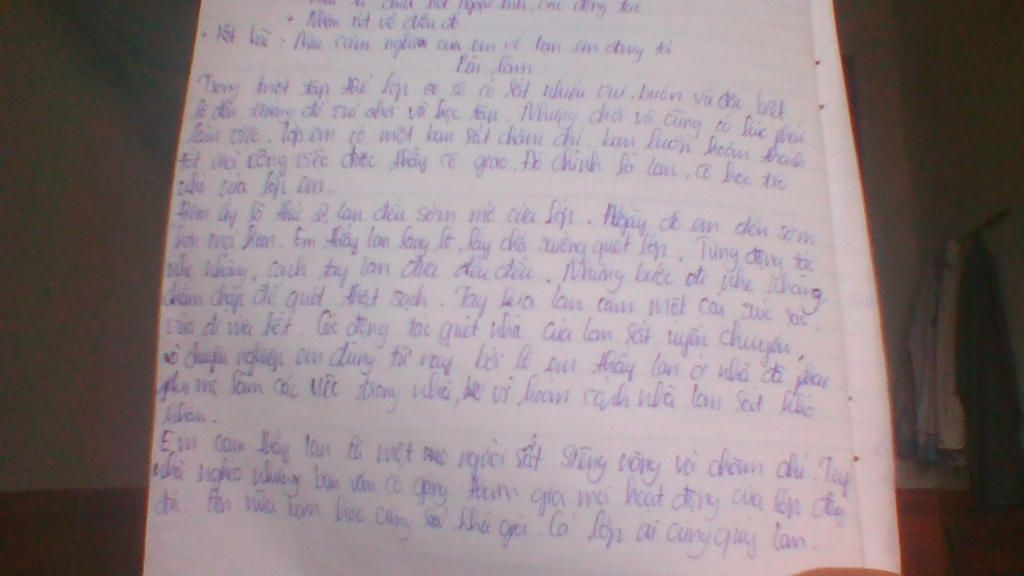 + Nhận xét về điều đó
+ Kết bài: Nêu cảm nghĩ của em về bạn em đang tả
Bài làm
Trong một tập thể lớp sẽ có rất nhiều vui, buồn và đặc biệt
là đến trường để vui chơi và học tập. Nhưng chơi và cũng có lúc phải
làm việc. Lớp em có một bạn rất chăm chỉ, bạn luôn hoàn thành
tốt mọi công việc được thầy cô giao. Đó chính là Lan, cô học trò
nhỏ của lớp em.
Hôm ấy là thứ 2, Lan đến sớm mở cửa lớp. Ngày đó em đến sớm
hơn mọi hôm. Em thấy Lan lặng lẽ, lấy chổi xuống quét lớp. Từng động tác
nhẹ nhàng, cánh tay Lan đưa đều đều. Những bước đi nhẹ nhàng,
chầm chậm để quét thật sạch. Tay kia Lan cầm một cái xúc rác
vừa đi vừa hót. Các động tác quét nhà của Lan rất uyển chuyển,
và chuyên nghiệp em dùng từ này bởi lẽ em thấy Lan ở nhà đã phải
phụ mẹ làm các việc trong nhà, vì hoàn cảnh nhà Lan rất khó
khăn.
Em cảm thấy Lan là một người rất siêng năng và chăm chỉ. Tuy
nhà nghèo nhưng bạn vẫn cố gắng tham gia mọi hoạt động của lớp đầy
đủ. Hơn nữa Lan học cũng khá giỏi. Cả lớp ai cũng quý Lan.